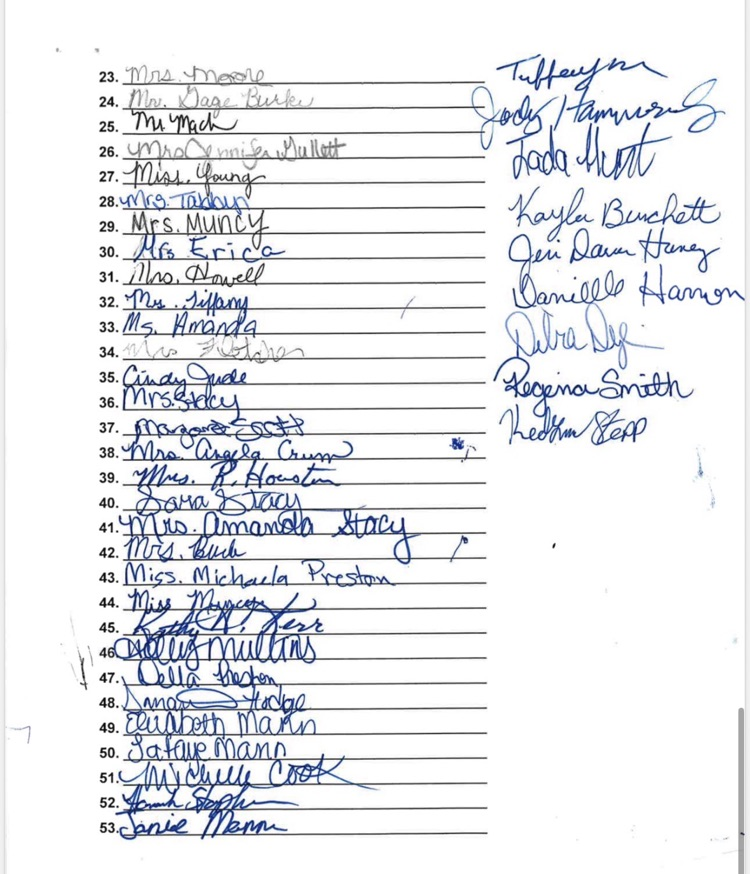 23. Mrs. Moore
24. Mr. Gage Burke
25. Mr. Mach
26. Mrs Jennifer Gullett
27. Miss. Young
28. Mrs. Tabbyn
29. Mrs. Muncy
30. Mrs Erica
31. Mrs. Howell
32. Mrs. Tiffany
33. Ms. Amanda
34. Mrs Fletcher
35. Cindy Jude
36. Mrs. Stacy
37. Margaret Scott
38. Mrs. Angela Crum
39. Mrs. R. Houston
40. Sara Stacy
41. Mrs. Amanda Stacy
42. Mrs.
43. Miss. Michaela Preston
44. Miss
45. Kathy N. Kerr
46. Holly Mullins
47. Della Preston
48. Hodge
49. Elizabeth Marin
50. Lafaye Mann
51. Michelle Cook
52. Hannah
53. Janie Mann
Jody
Jada Hunt
Kayla Burchett
Jeri Dawn Haney
Danielle Harmon
Debra
Regina Smith
Stepp